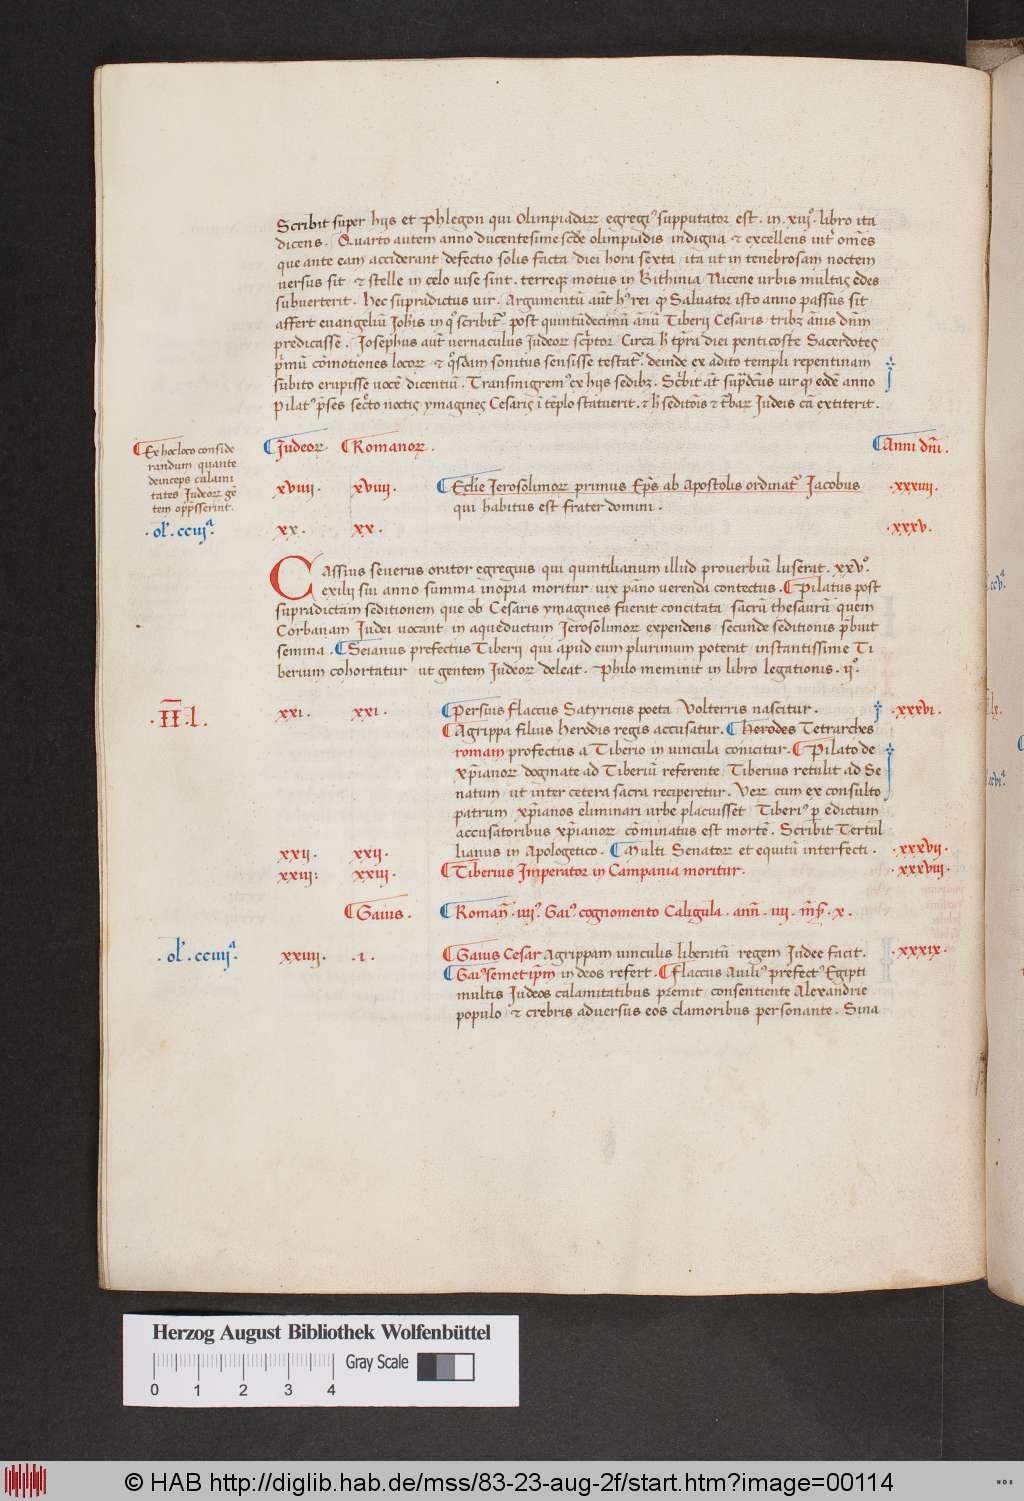 Scribit super hijs et Phlegon qui Olimpiadaꝝ egregiꝰ supputator est . in . xiijº . libro ita
dicens . Quarto autem anno ducentesime scd̄e olimpiadis indigna ⁊ excellens int̉ om̄es
que ante eam acciderant defectio solis facta diei hora sexta ita ut in tenebrosam noctem
versus sit ⁊ stelle in celo vise sint . terreqꝫ motus in Bithinia Nicene urbis multas edes
subverterit . Hec supradictus vir . Argumentū aūt hꝰ rei qꝙ Salvator isto anno passus sit
affert euangeliū Joh̄is in qº scribit̉ post quintūdecimū ānū Tiberij Cesaris tribꝫ ānis dn̄m
predicasse . Josephus aūt vernaculus Judeoꝝ sc̉ptor . Circa h̄ tp̄ra diei penticoste Sacerdotes
p̉mū cōmotiones locoꝝ ⁊ qºsdam sonitus sensisse testat̉ . deinde ex adito templi repentinam
subito erupisse vocē dicentiū . Transmigremꝰ ex hijs sedibꝫ . Sc̉bit āt sup̄dc̄us vir qꝙ eodē anno
Pilatꝰ p̄ses secr̄to noctis ymagines Cesaris ī tēplo statuerit . ⁊ h̄ seditōis ⁊ t̉baꝝ Judeis cā extiterit .
Ex hoc loco conside
randum quante
deinceps calami
tates Judeoꝝ gē
tem opp̄sserint .
Judeoꝝ Romanoꝝ . Anni dn̄i .
xviiij . xviiij . Ecl̄ie Jerosolimoꝝ primus Ep̄s ab Apostolis ordinat̉ Jacobus . xxxiiij .
qui habitus est frater domini .
. ol̉ . cciijª . xx . xx . . xxxv .
Cassius severus orator egregius qui quintilianum illud proverbiū luserat . xxvº .
exilij sui anno summa inopia moritur vix pāno verenda contectus . Pilatus post
supradictam seditionem que ob Cesaris ymagines fuerit concitata sacrū thesaurū quem
Corbanam Judei vocant in aqueductum Jerosolimoꝝ expendens secunde seditionis p̄buit
semina . Seianus prefectus Tiberij qui apud eum plurimum poterat instantissime Ti
berium cohortatur ut gentem Judeoꝝ deleat . Philo meminit in libro legationis . ijº .
. IĪ . l . xxi . xxi . Persius flaccus Satyricus poeta Volterris nascitur . . xxxvi .
Agrippa filius herodis regis accusatur . Herodes Tetrarches
romam profectus a Tiberio in vincula conicitur . Pilato de
xp̄ianoꝝ dogmate ad Tiberiū referente Tiberius retulit ad Se
natum ut inter cetera sacra reciperetur . Veꝝ cum ex consulto
patrum xp̄ianos eliminari urbe placuisset Tiberiꝰ p edictum
accusatoribus xp̄ianoꝝ cōminatus est mortē . Scribit Tertul
xxij . xxij . lianus in Apologetico . Multi Senatoꝝ et equitū interfecti . . xxxvij .
xxiij : xxiij . Tiberius Imperator in Campania moritur . . xxxviij .
Gaius . Romañ . iiijº . Gaiꝰ . cognomento Caligula . añn . iiij . m̄s . x .
. ol̉ . cciiijª . xxiiij . . i . Gaius Cesar Agrippam vinculis liberatū regem Judee facit . . xxxix .
Gaiꝰ semetip̄m in deos refert . Flaccus Aviliꝰ prefectꝰ Egipti
multis Judeos calamitatibus premit consentiente Alexandrie
populo ⁊ crebris adversus eos clamoribus personante . Sina
Herzog August Bibliothek Wolfenbüttel
Gray Scale
0 1 2 3 4
© HAB http://diglib.hab.de/mss/83-23-aug-2f/start.htm?image=00114